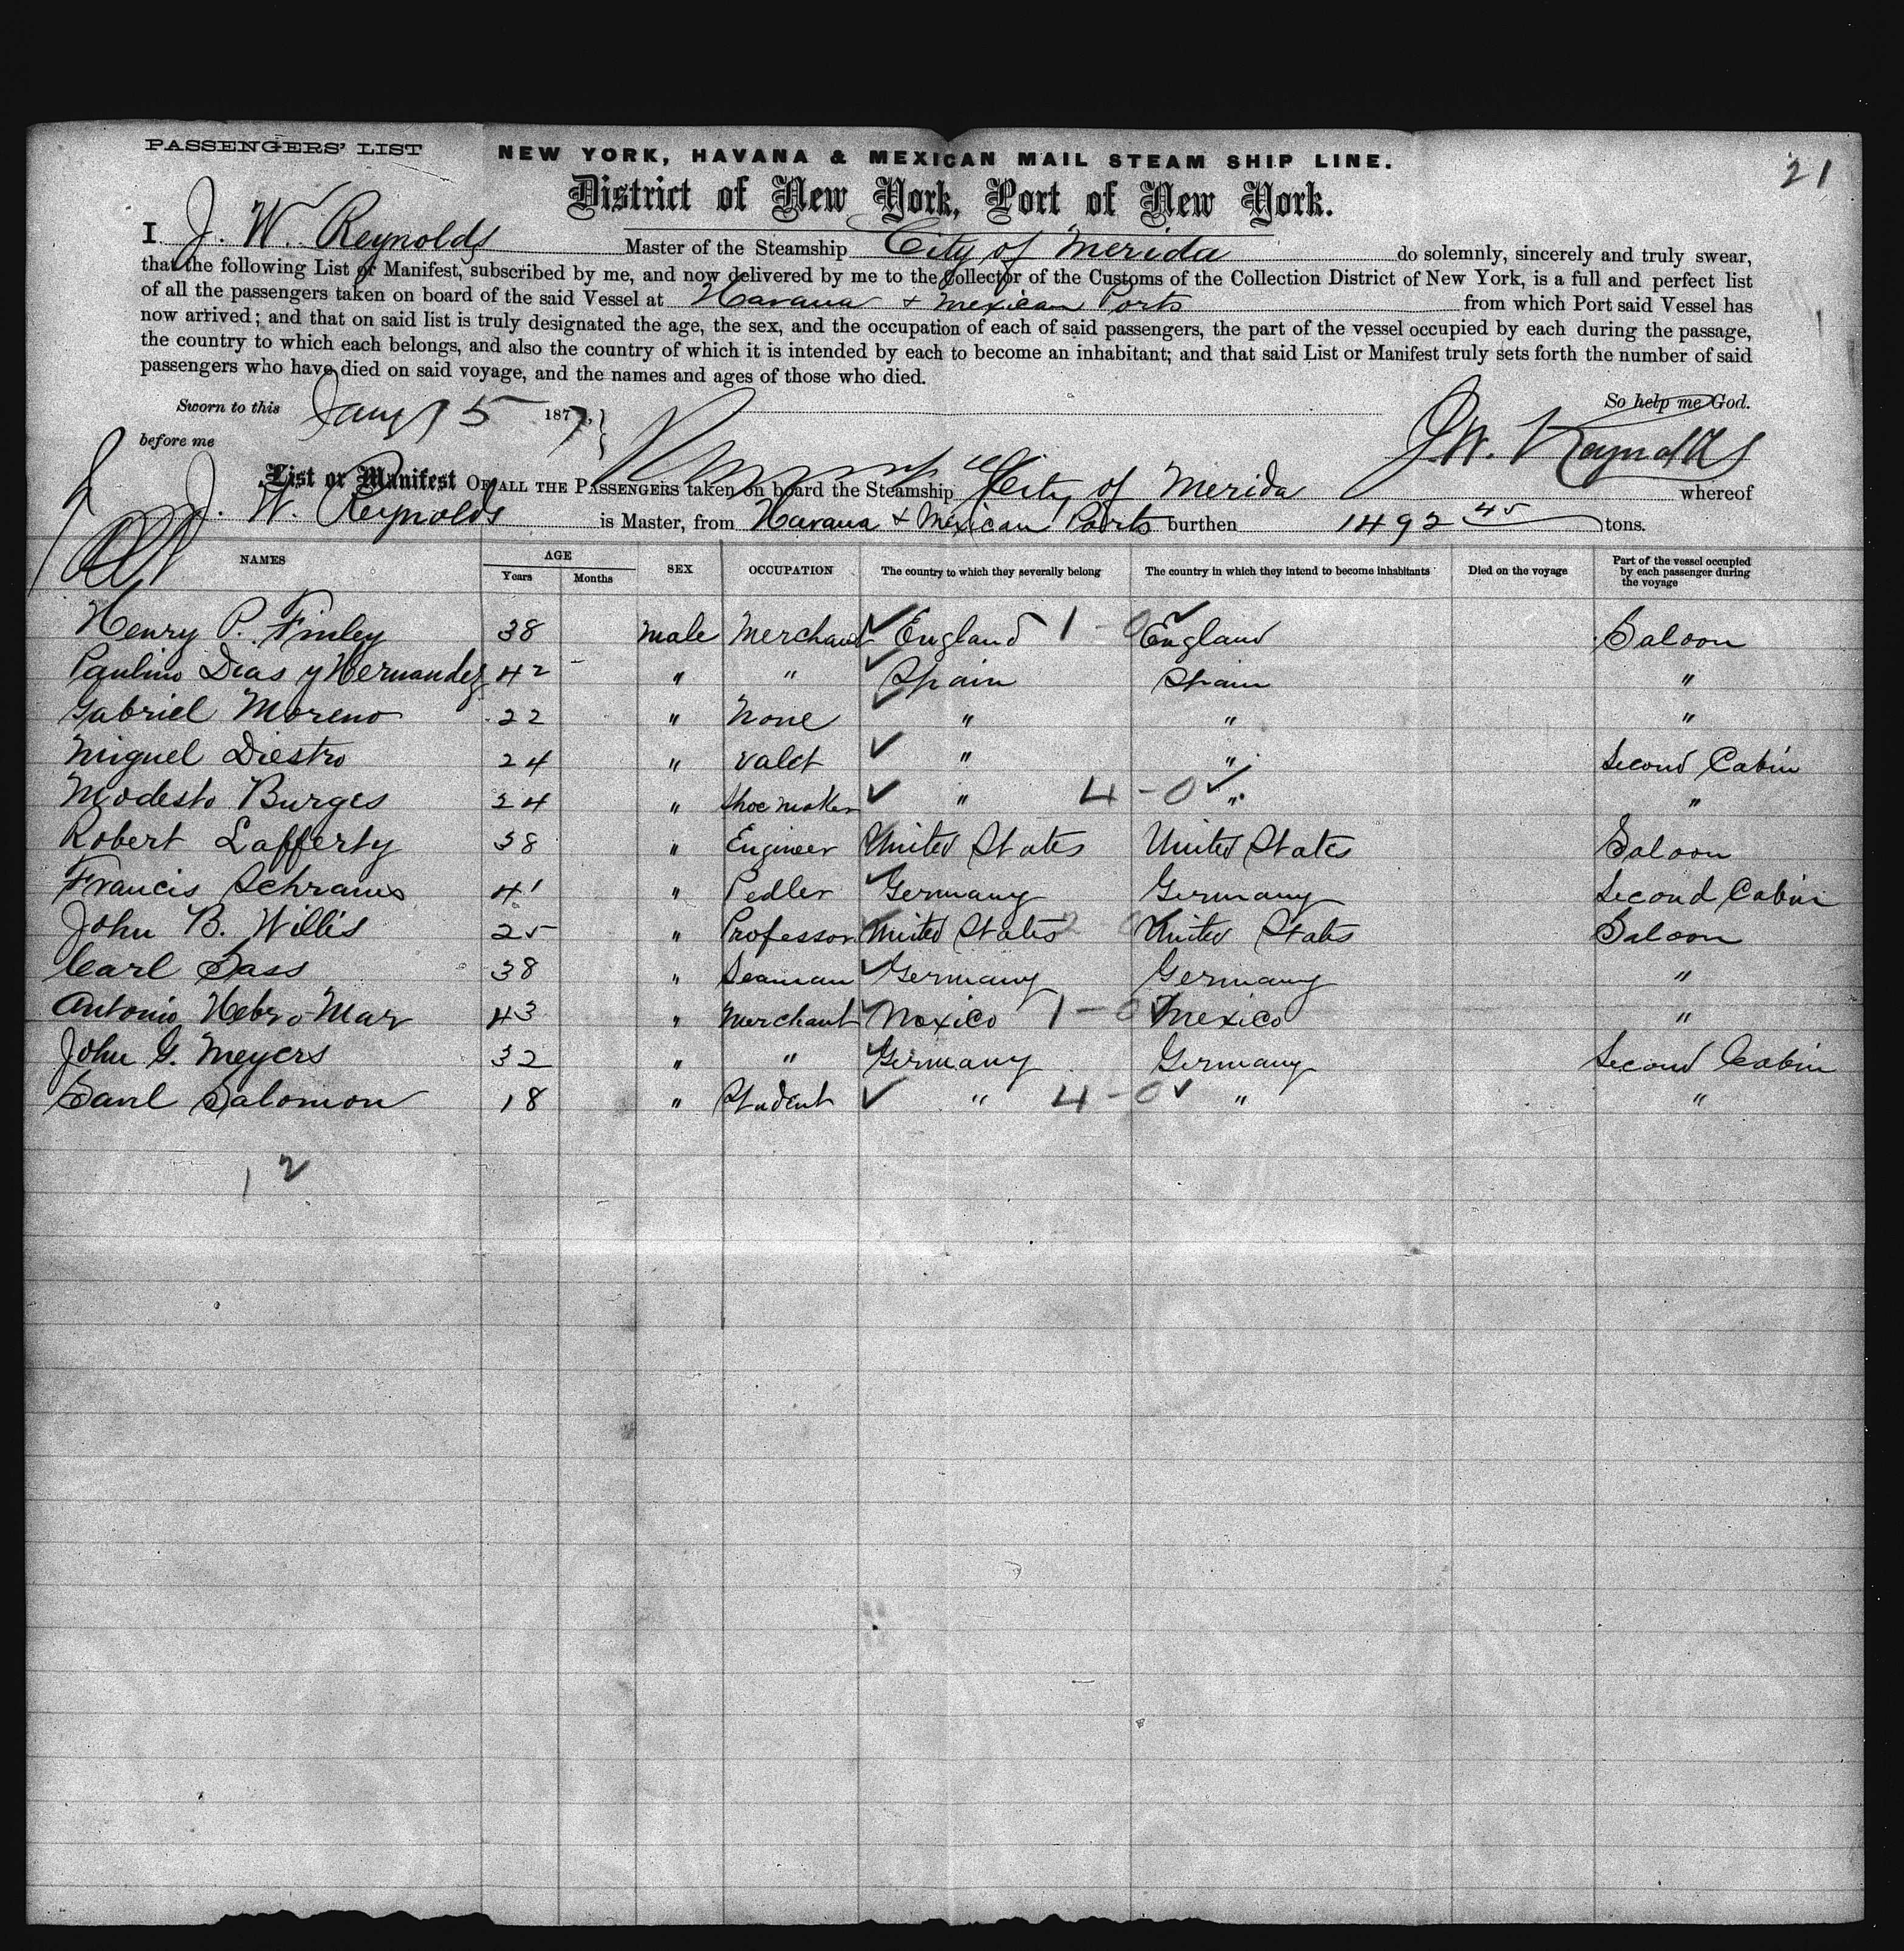 PASSENGERS' LIST
NEW YORK, HAVANA & MEXICAN MAIL STEAM SHIP LINE.
21
District of New York, Port of New York.
I J. W. Reynolds Master of the Steamship City of Merida do solemnly, sincerely and truly swear,
that the following List or Manifest, subscribed by me, and now delivered by me to the Collector of the Customs of the Collection District of New York, is a full and perfect list
of all the passengers taken on board of the said Vessel at Havana & Mexican Ports from which Port said Vessel has
now arrived; and that on said list is truly designated the age, the sex, and the occupation of each of said passengers, the part of the vessel occupied by each during the passage,
the country to which each belongs, and also the country of which it is intended by each to become an inhabitant; and that said List or Manifest truly sets forth the number of said
passengers who have died on said voyage, and the names and ages of those who died.
Sworn to this Jany 15 1877, So help me God.
before me J. W. Reynolds
List or Manifest OF ALL THE PASSENGERS taken on board the Steamship City of Merida whereof
J. W. Reynolds is Master, from Havana & Mexican Ports burthen 1492 45 tons.
NAMES AGE Years Months SEX OCCUPATION The country to which they severally belong The country in which they intend to become inhabitants Died on the voyage Part of the vessel occupied by each passenger during the voyage
Henry P. Finley 38 male Merchant England 1 - 0 England Saloon
Paulino Dias y Hernandez 42 " " Spain Spain "
Gabriel Moreno 22 " None " " "
Miguel Diestro 24 " Valet " " Second Cabin
Modesto Burges 24 " Shoemaker " 4 - 0 " "
Robert Lafferty 38 " Engineer United States United States Saloon
Francis 41 " Pedler Germany Germany Second Cabin
John B. Willis 25 " Professor United States 2 0 United States Saloon
Carl Sass 38 " Seaman Germany Germany "
Antonio Mar 43 " Merchant Mexico 1 - 0 Mexico "
John G. Meyers 32 " " Germany Germany Second Cabin
Saul Salomon 18 " Student " 4 - 0 " "
12